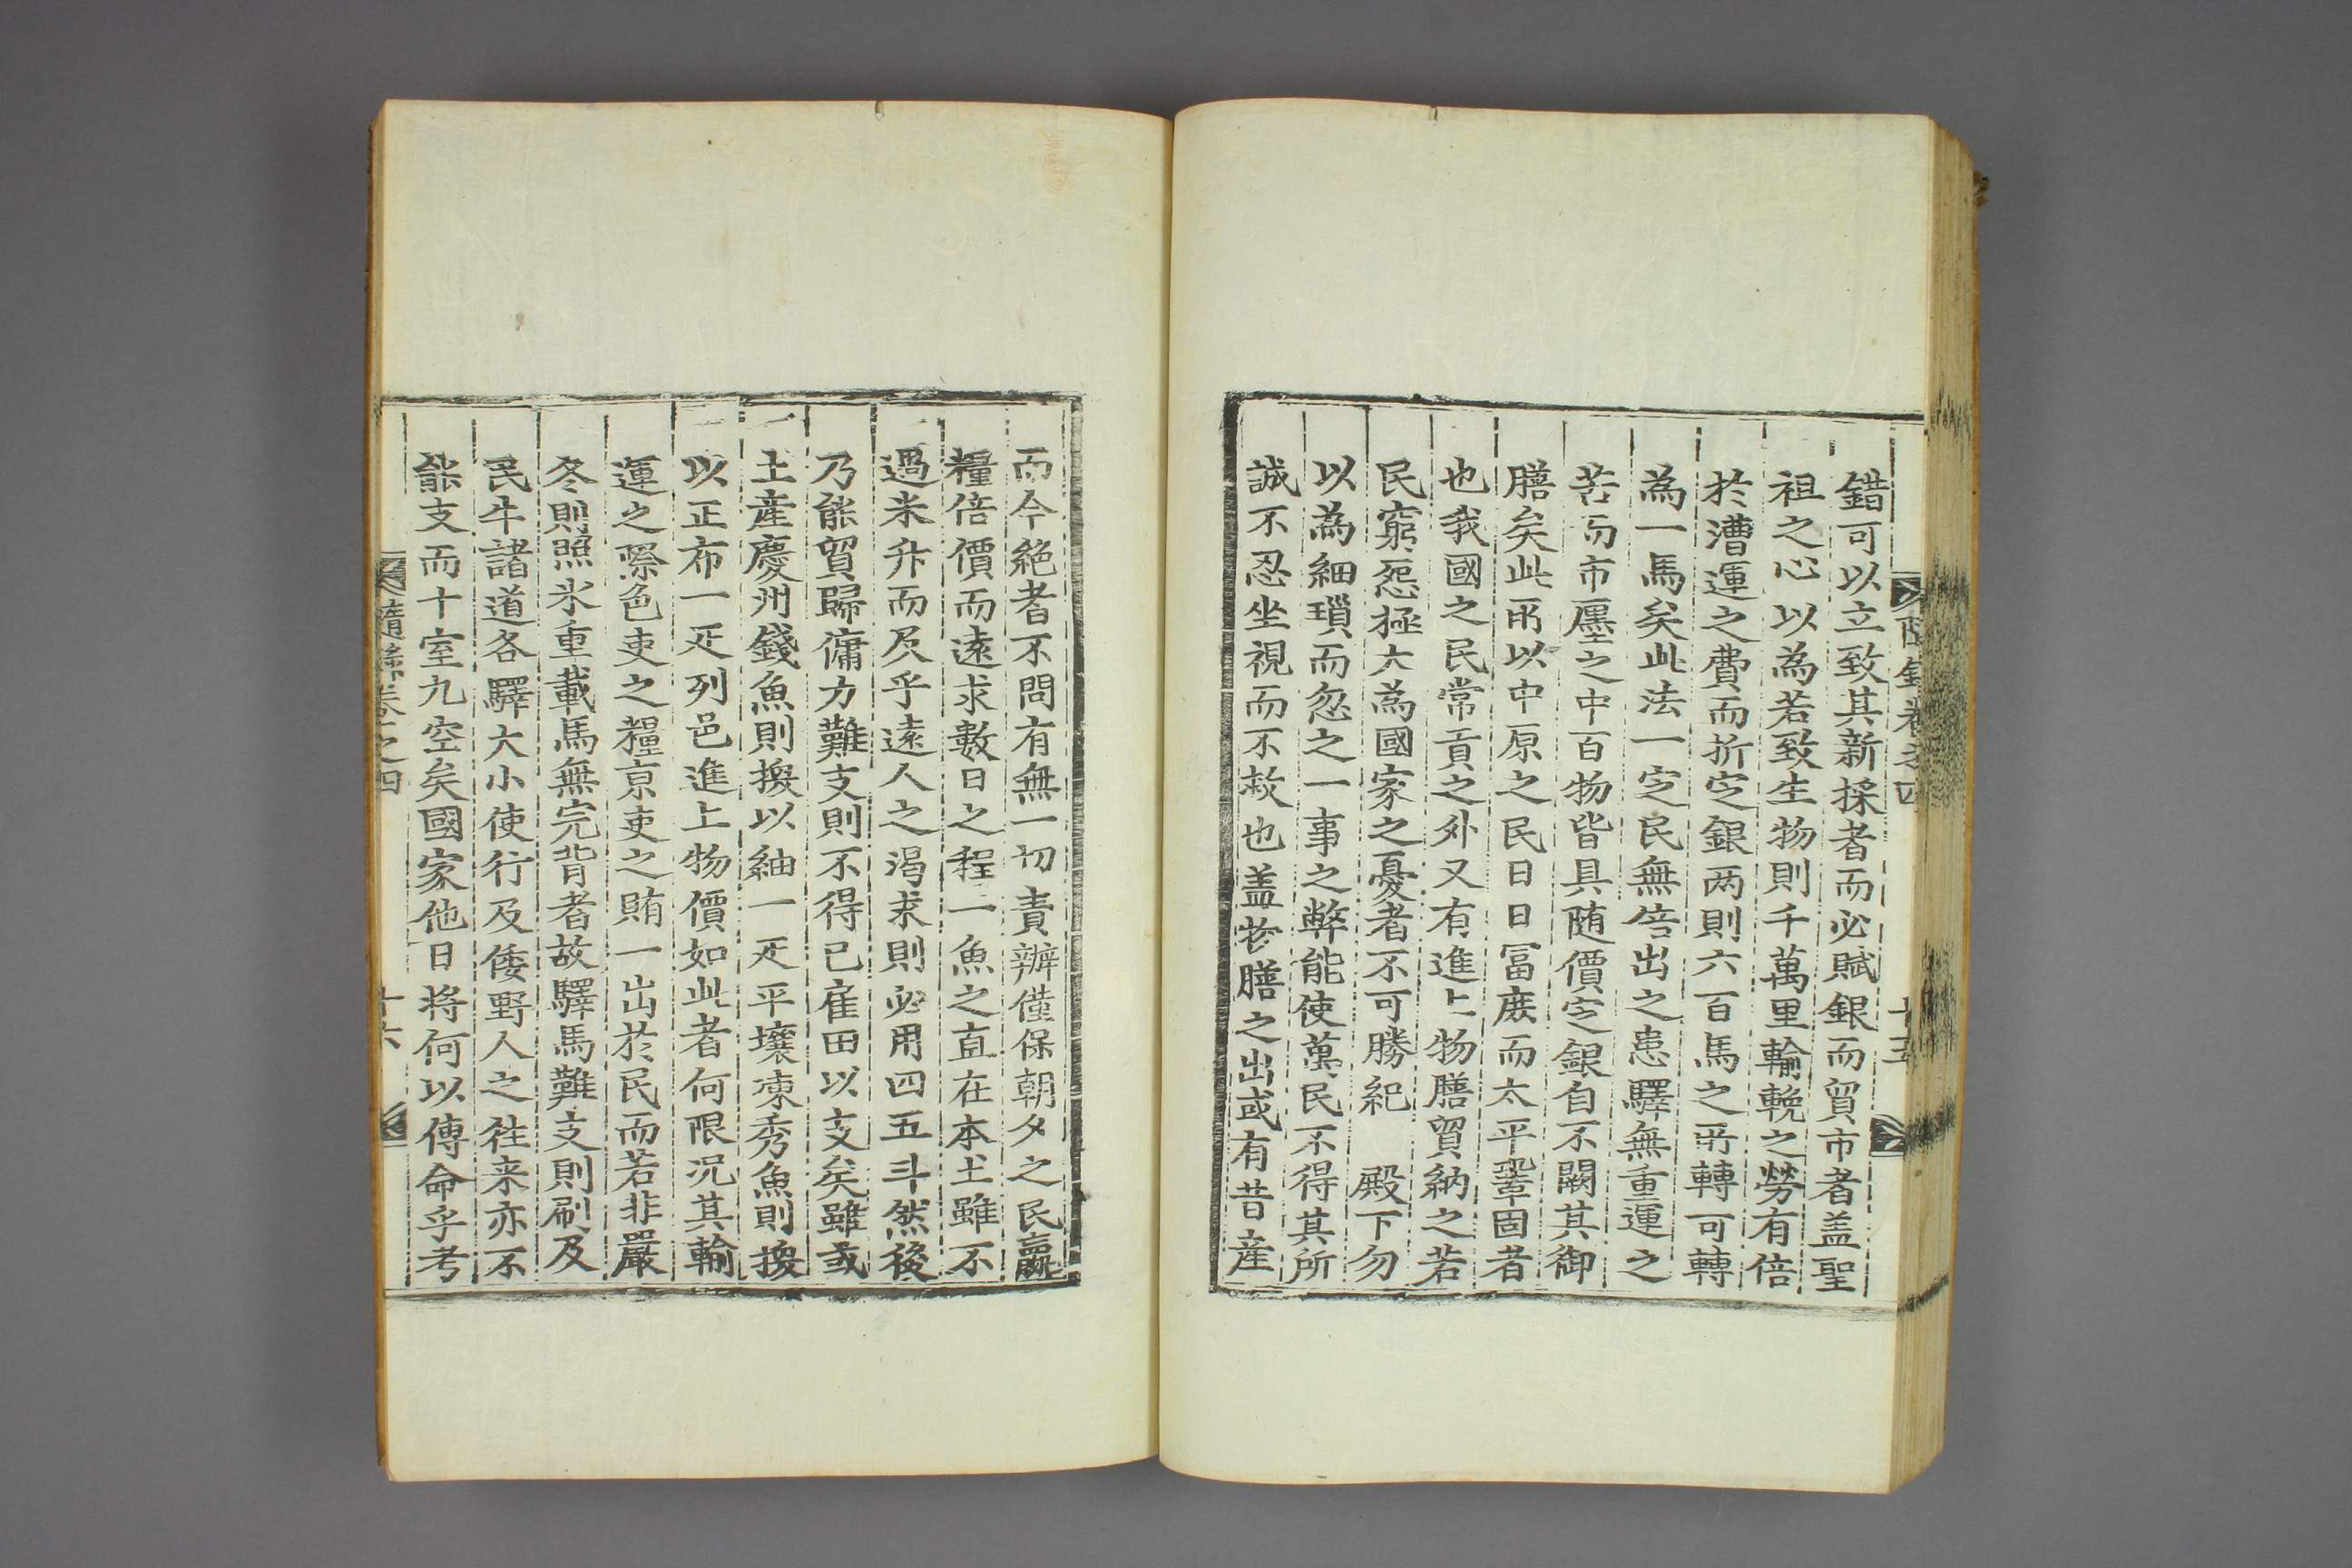 錯可以立致其新採者而必賦銀而貿市者盖聖
祖之心以為若致生物則千萬里輸輓之勞有倍
於漕運之費而折定銀兩則六百馬之所轉可轉
為一馬矣此法一定民無倍出之患驛無重運之
苦而市廛之中百物皆具随價定銀自不闕其御
膳矣此所以中原之民日日冨庻而太平鞏固者
也我國之民常貢之外又有進上物膳貿納之若
民窮怨極大為國家之憂者不可勝紀 殿下勿
以為細瑣而忽之一事之弊能使萬民不得其所
誠不忍坐視而不救也盖物膳之出或有昔産
而今絶者不問有無一切責辦僅保朝夕之民贏
糧倍價而遠求數日之程一魚之直在本土雖不
過米升而及乎遠人之渴求則必用四五斗然後
乃能貿歸傭力難支則不得已雇田以支矣雖或
土産慶州錢魚則換以紬一疋平壤凍秀魚則換
以正布一疋列邑進上物價如此者何限况其輸
運之際色吏之糧京吏之賄一出於民而若非嚴
冬則照氷重載馬無完背者故驛馬難支則刷及
民牛諸道各驛大小使行及倭野人之徃来亦不
能支而十室九空矣國家他日将何以傳命乎考
隨錄卷之四
十六
十五